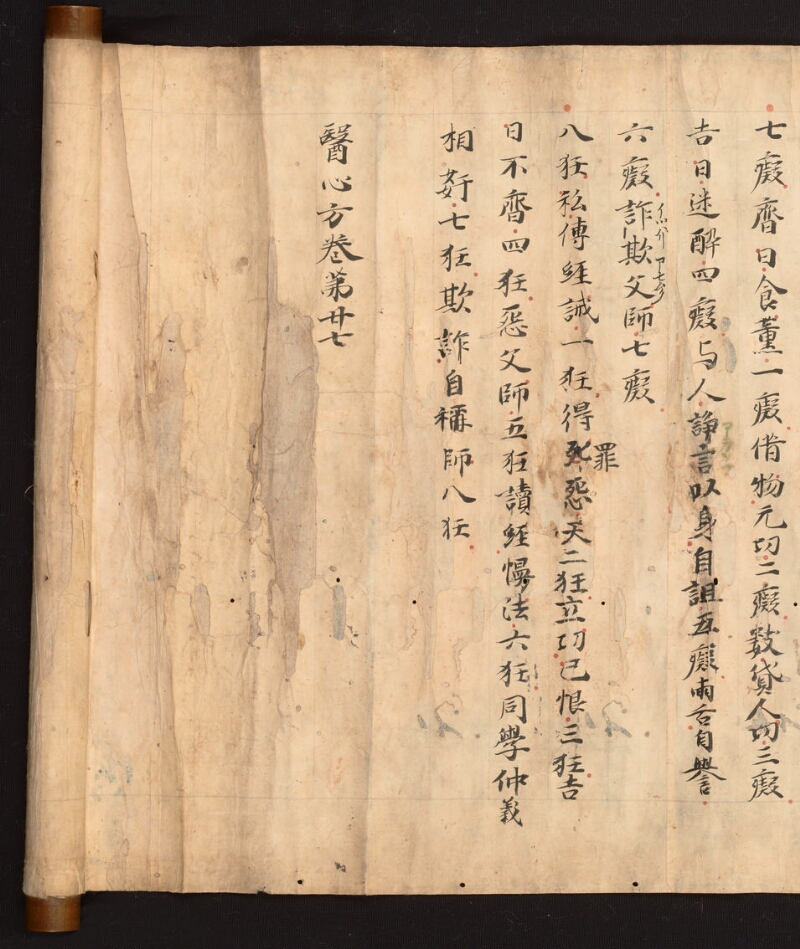 七癡齋日食薫一癡借物元功二癡數貸人功三癡
吉日迷酔四癡与人諍言以身自詛五癡兩舌自譽
六癡詐欺父師七癡
八狂私傳經誡一狂得罪怨天二狂立功已恨三狂吉
日不齋四狂惡父師五狂讀經慢法六狂同學仲義
相姧七狂欺詐自稱師八狂
醫心方卷第廿七